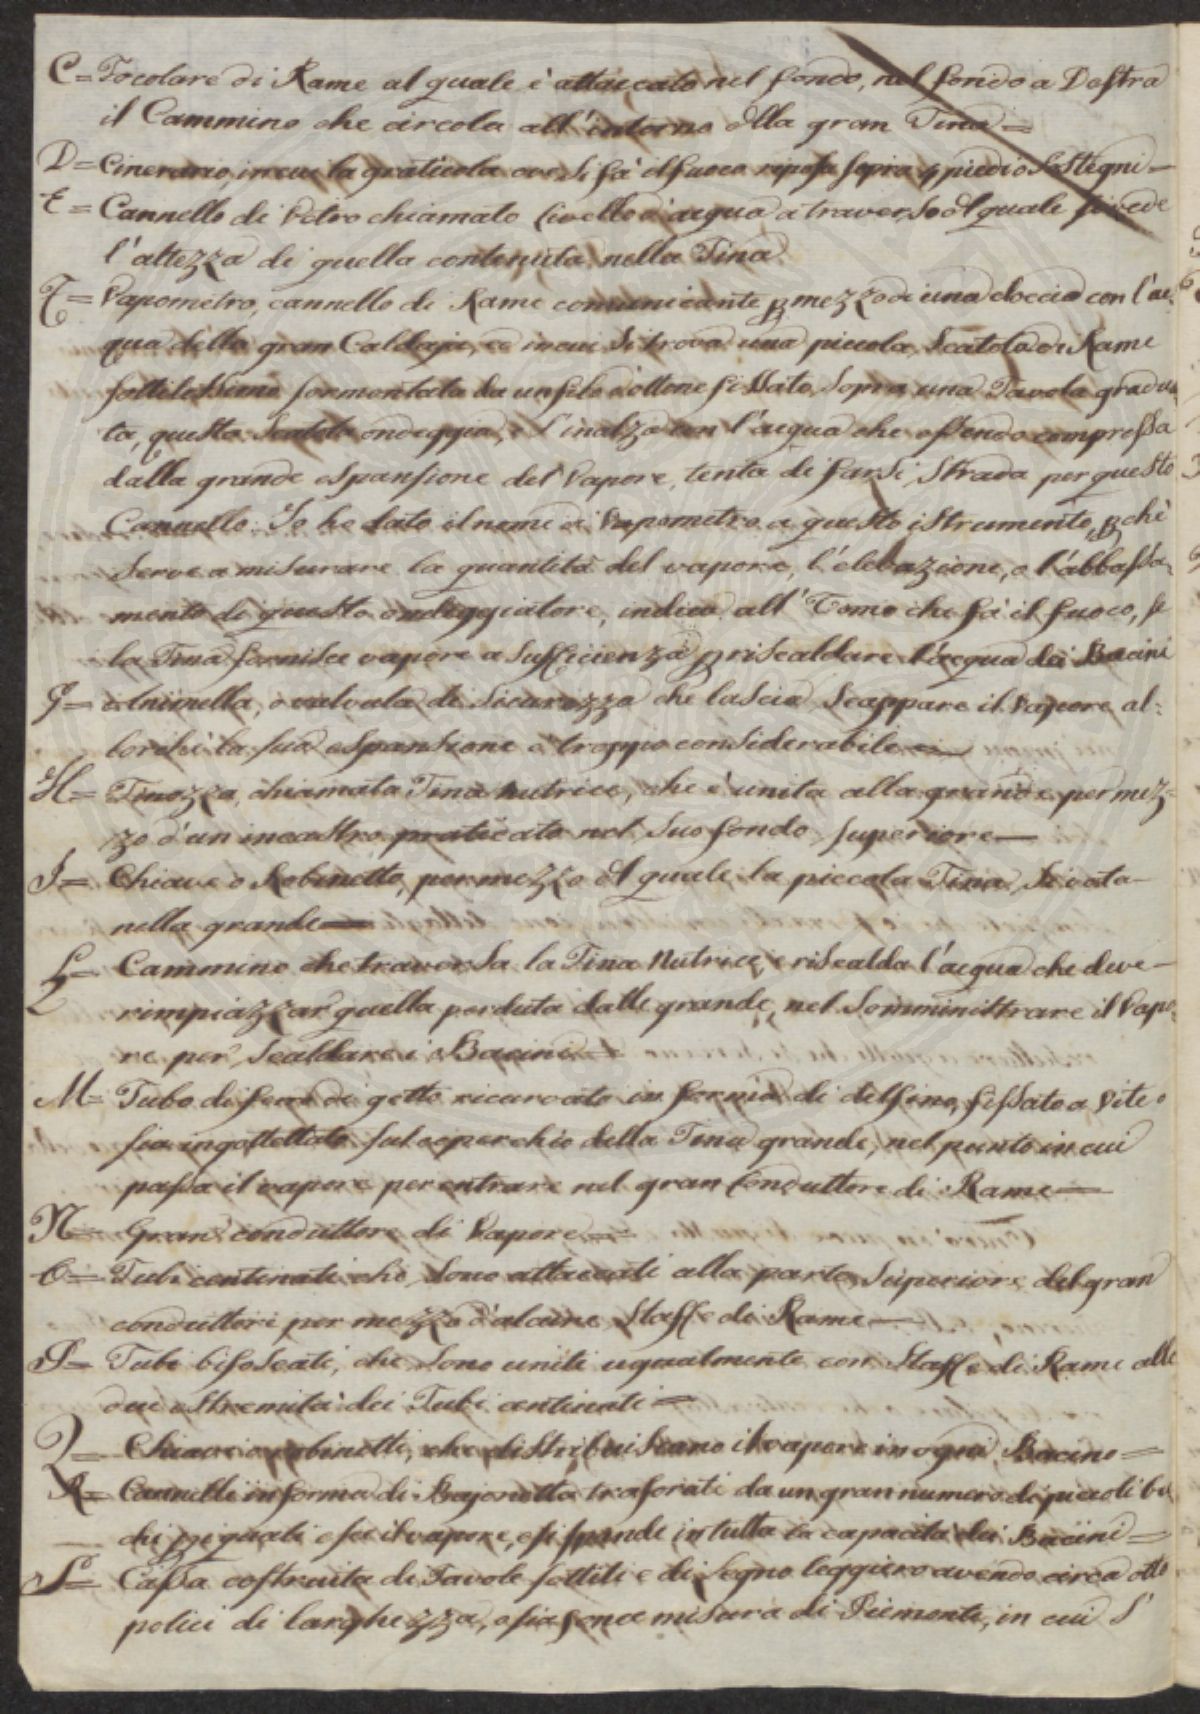 C= Focolare di Rame al quale è attaccato nel fondo, nel fondo a Destra
il Cammino che circola all'intorno della gran Tina=
D= Cinerario, in cui la graticola ove si fà il fuoco riposa sopra 4 piedi o Sostegni=
E= Cannello di Vetro chiamato livello d'acqua a traverso del quale si vede
l'altezza di quella contenuta nella Tina.
F= Vapometro, cannello di Rame comunicante p mezzo di una doccia con l'ac:
qua della gran Caldaja, ed in cui si trova una piccola Scatola di Rame
sottilissimo sormontata da un filo d'ottone fissato sopra una Tavola gradua
ta, questa Scatola ondeggia, e s'inalza con l'acqua che essendo compressa
dalla grande espansione del Vapore, tenta di farsi strada per questo
Cannello. Io ho dato il nome di Vapometro a questo istrumento, p chè
serve a misurare la quantità del vapore, l'elevazione, o l'abbassa:
mento di questo ondeggiatore, indica all'Uomo che fà il fuoco, se
la Tina fornisce vapore a sufficienza p riscaldare l'acqua dei Bacini
G= Animella, o valvola di sicurezza che lascia scappare il Vapore al:
lorchè la sua espansione è troppo considerabile=
H= Tinozza, chiamata Tina nutrice, che è unita alla grande per mez=
zo d'un incastro praticato nel suo fondo superiore—
I= Chiave o Robinetto, per mezzo del quale la piccola Tina, si vota
nella grande—
L= Cammino che traversa la Tina Nutrice, e riscalda l'acqua che deve
rimpiazzar quella perduta dalle grande, nel somministrare il Vapo:
re per scaldare i Bacini=
M= Tubo di ferro di getto ricurvato in forma di delfino, fissato a Vite o
sia ingottettato sul coperchio della Tina grande, nel punto in cui
passa il vapore per entrare nel gran Conduttore di Rame—
N= Gran conduttore di Vapore=
O= Tubi centinati che sono attaccati alla parte superiore del gran
conduttori per mezzo d'alcune Staffe di Rame—
P= Tubi bifolcati, che sono uniti ugualmente con Staffe di Rame alle
due estremità dei Tubi centinati=
Q= Chiavi o robinetti, che distribuiscano il vapore in ogni Bacino=
R= Cannelli in forma di Bajonetta traforati da un gran numero di piccoli bu
chi p i quali esce il vapore, e si spande in tutta la capacità dei Bacini=
S= Cassa costruita di Tavole sottili e di legno leggiero avendo circa otto
polici di larghezza, o sia once misura di Piemonte, in cui s'